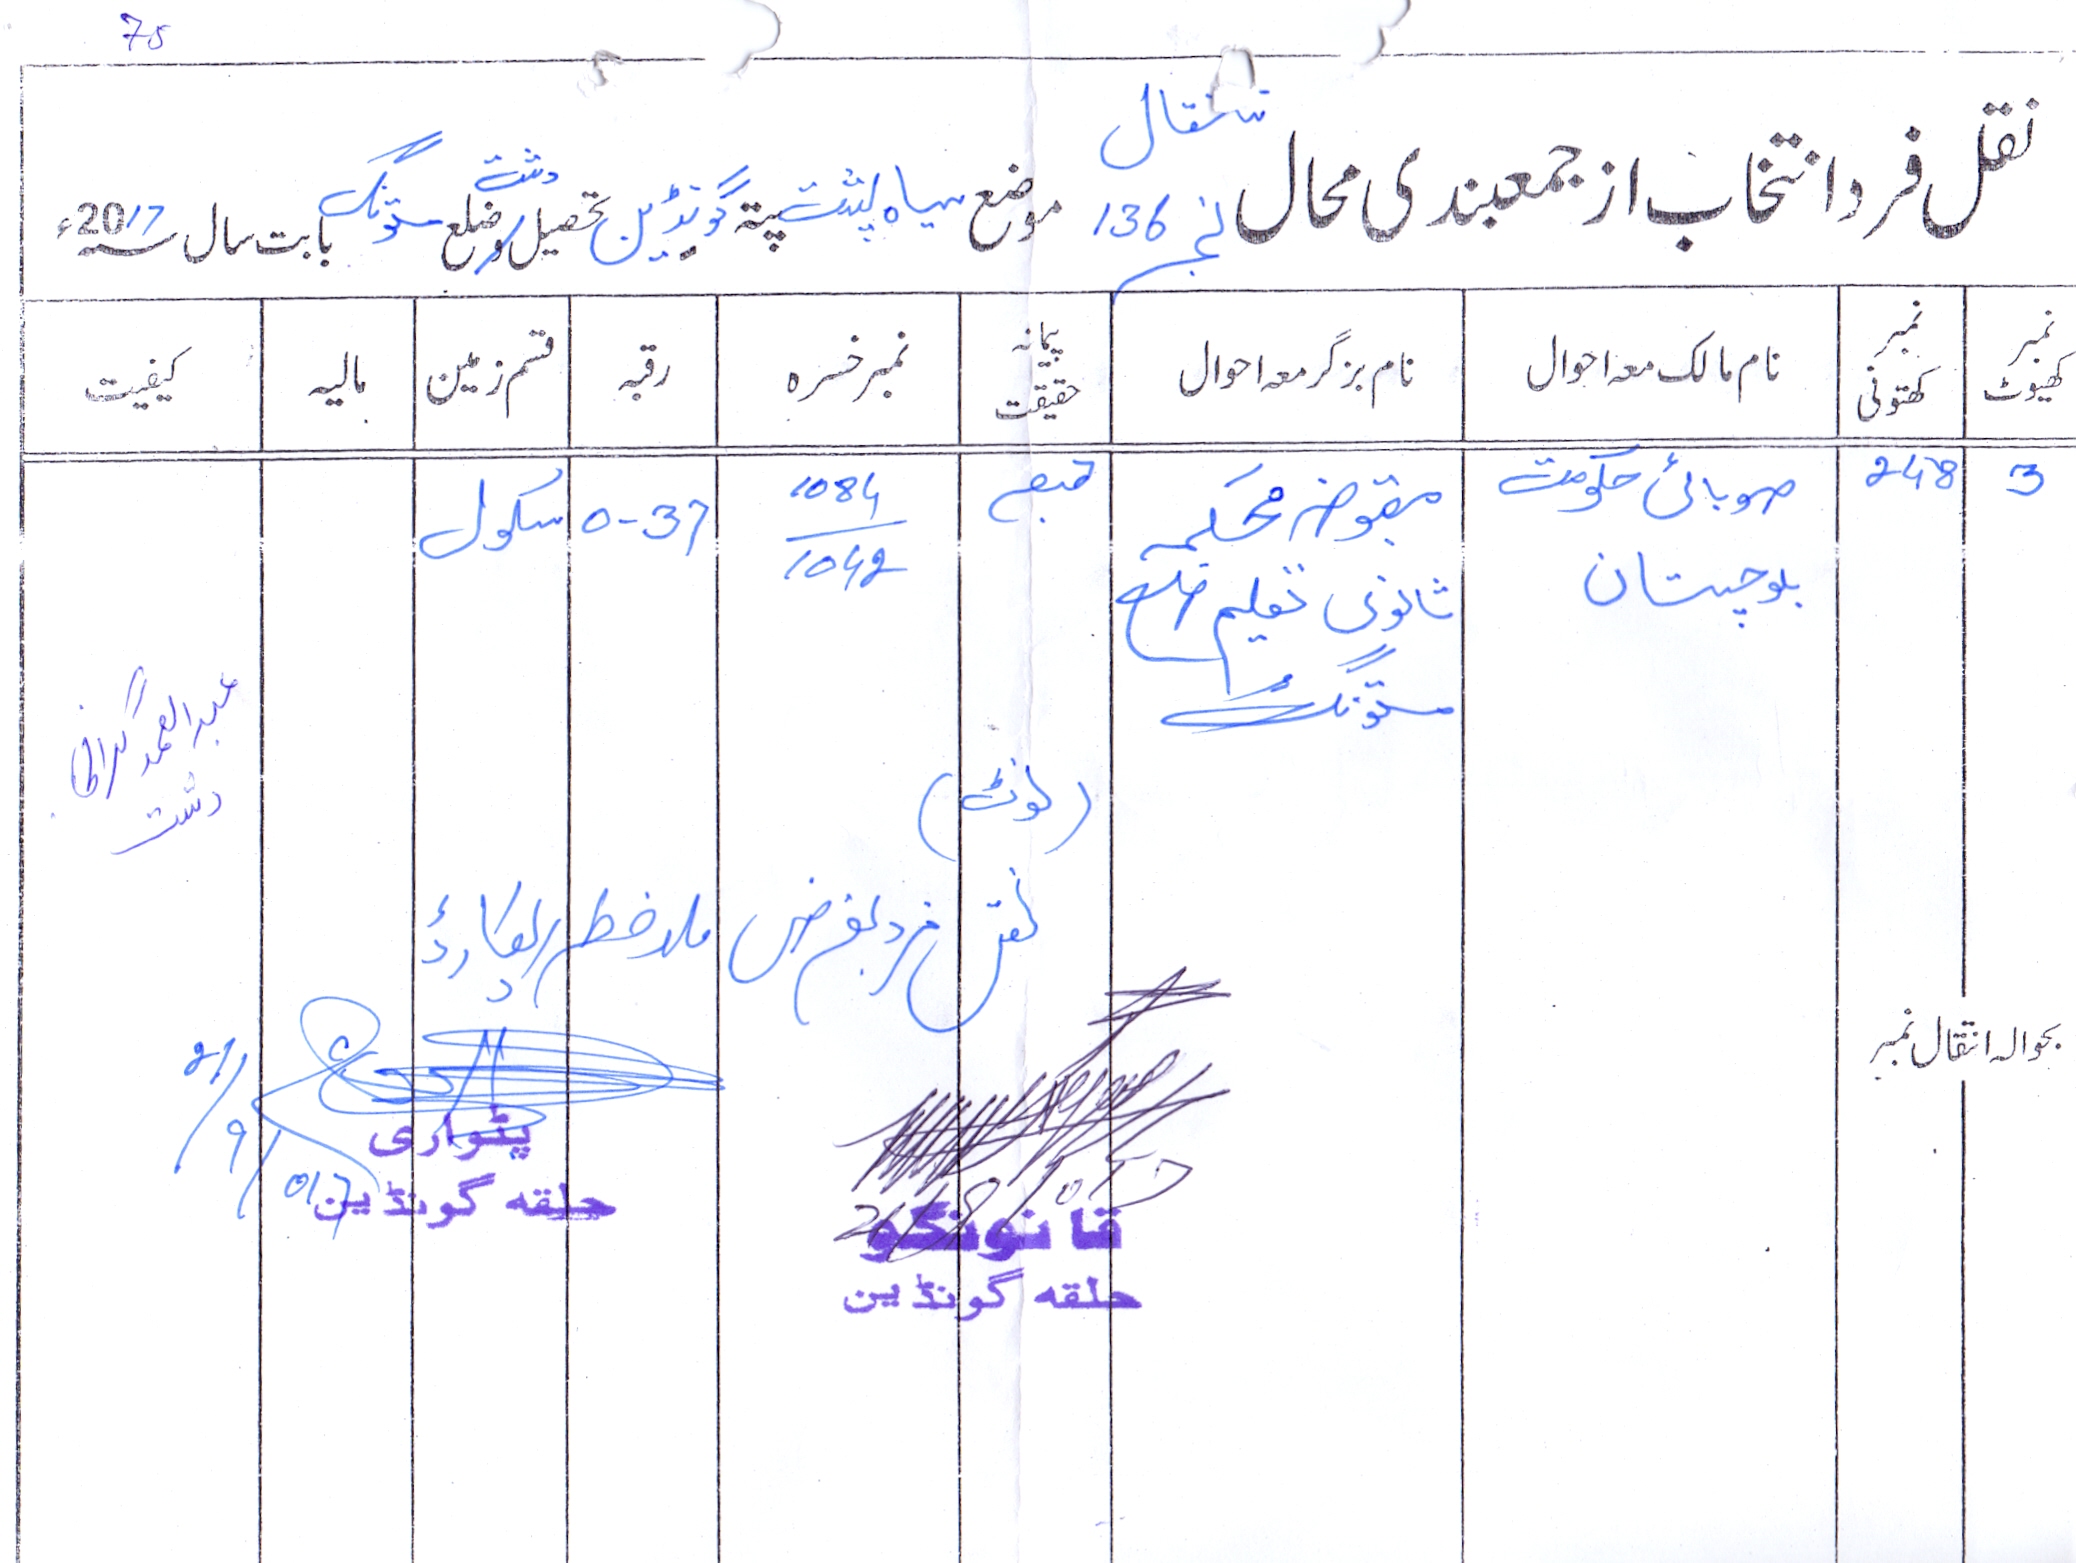 75
نقل فرد انتخاب از جمعبندی محال انتقال نمبر 136 موضع سیاہ پشت پتہ گونڈین تحصیل دشت و ضلع مستونگ بابت سال سنہ 2017ء
نمبر کھیوٹ نمبر کھتونی نام مالک معہ احوال نام بزگر معہ احوال پیمانہ حقیقت نمبر خسرہ رقبہ قسم زمین مالیہ کیفیت
3 248 صوبائی حکومت مقبوضہ محکمہ قبضے 1084 0-37 سکول
بلوچستان ثانوی تعلیم ضلع 1042
مستونگ
عبدالصمد
دشت
(نوٹ)
نقل فرد بغرض ملاحظہ ریکارڈ
بحوالہ انتقال نمبر
21/9/017
پٹواری
حلقہ گونڈین
قانونگو
حلقہ گونڈین